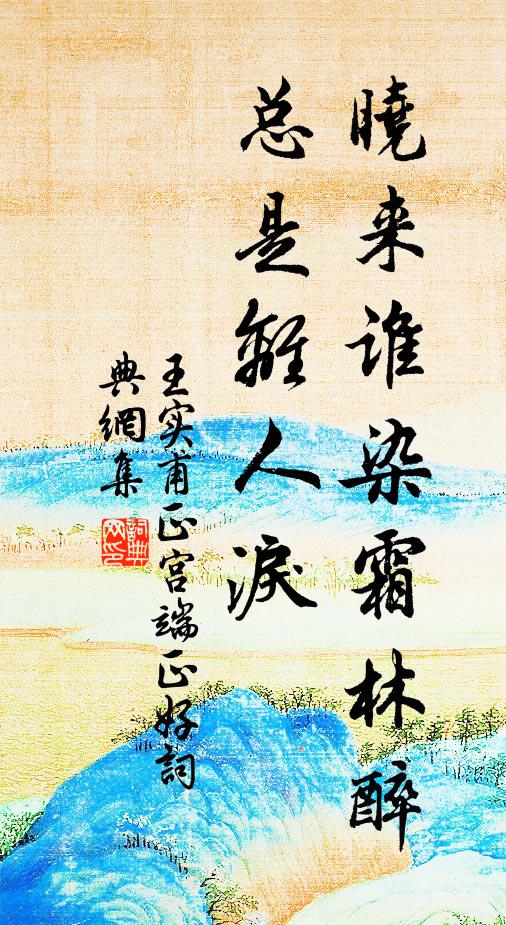 曉来谁染霜林醉
总是離人淚
王实甫正宫端正好詞
典網集
詞典网印